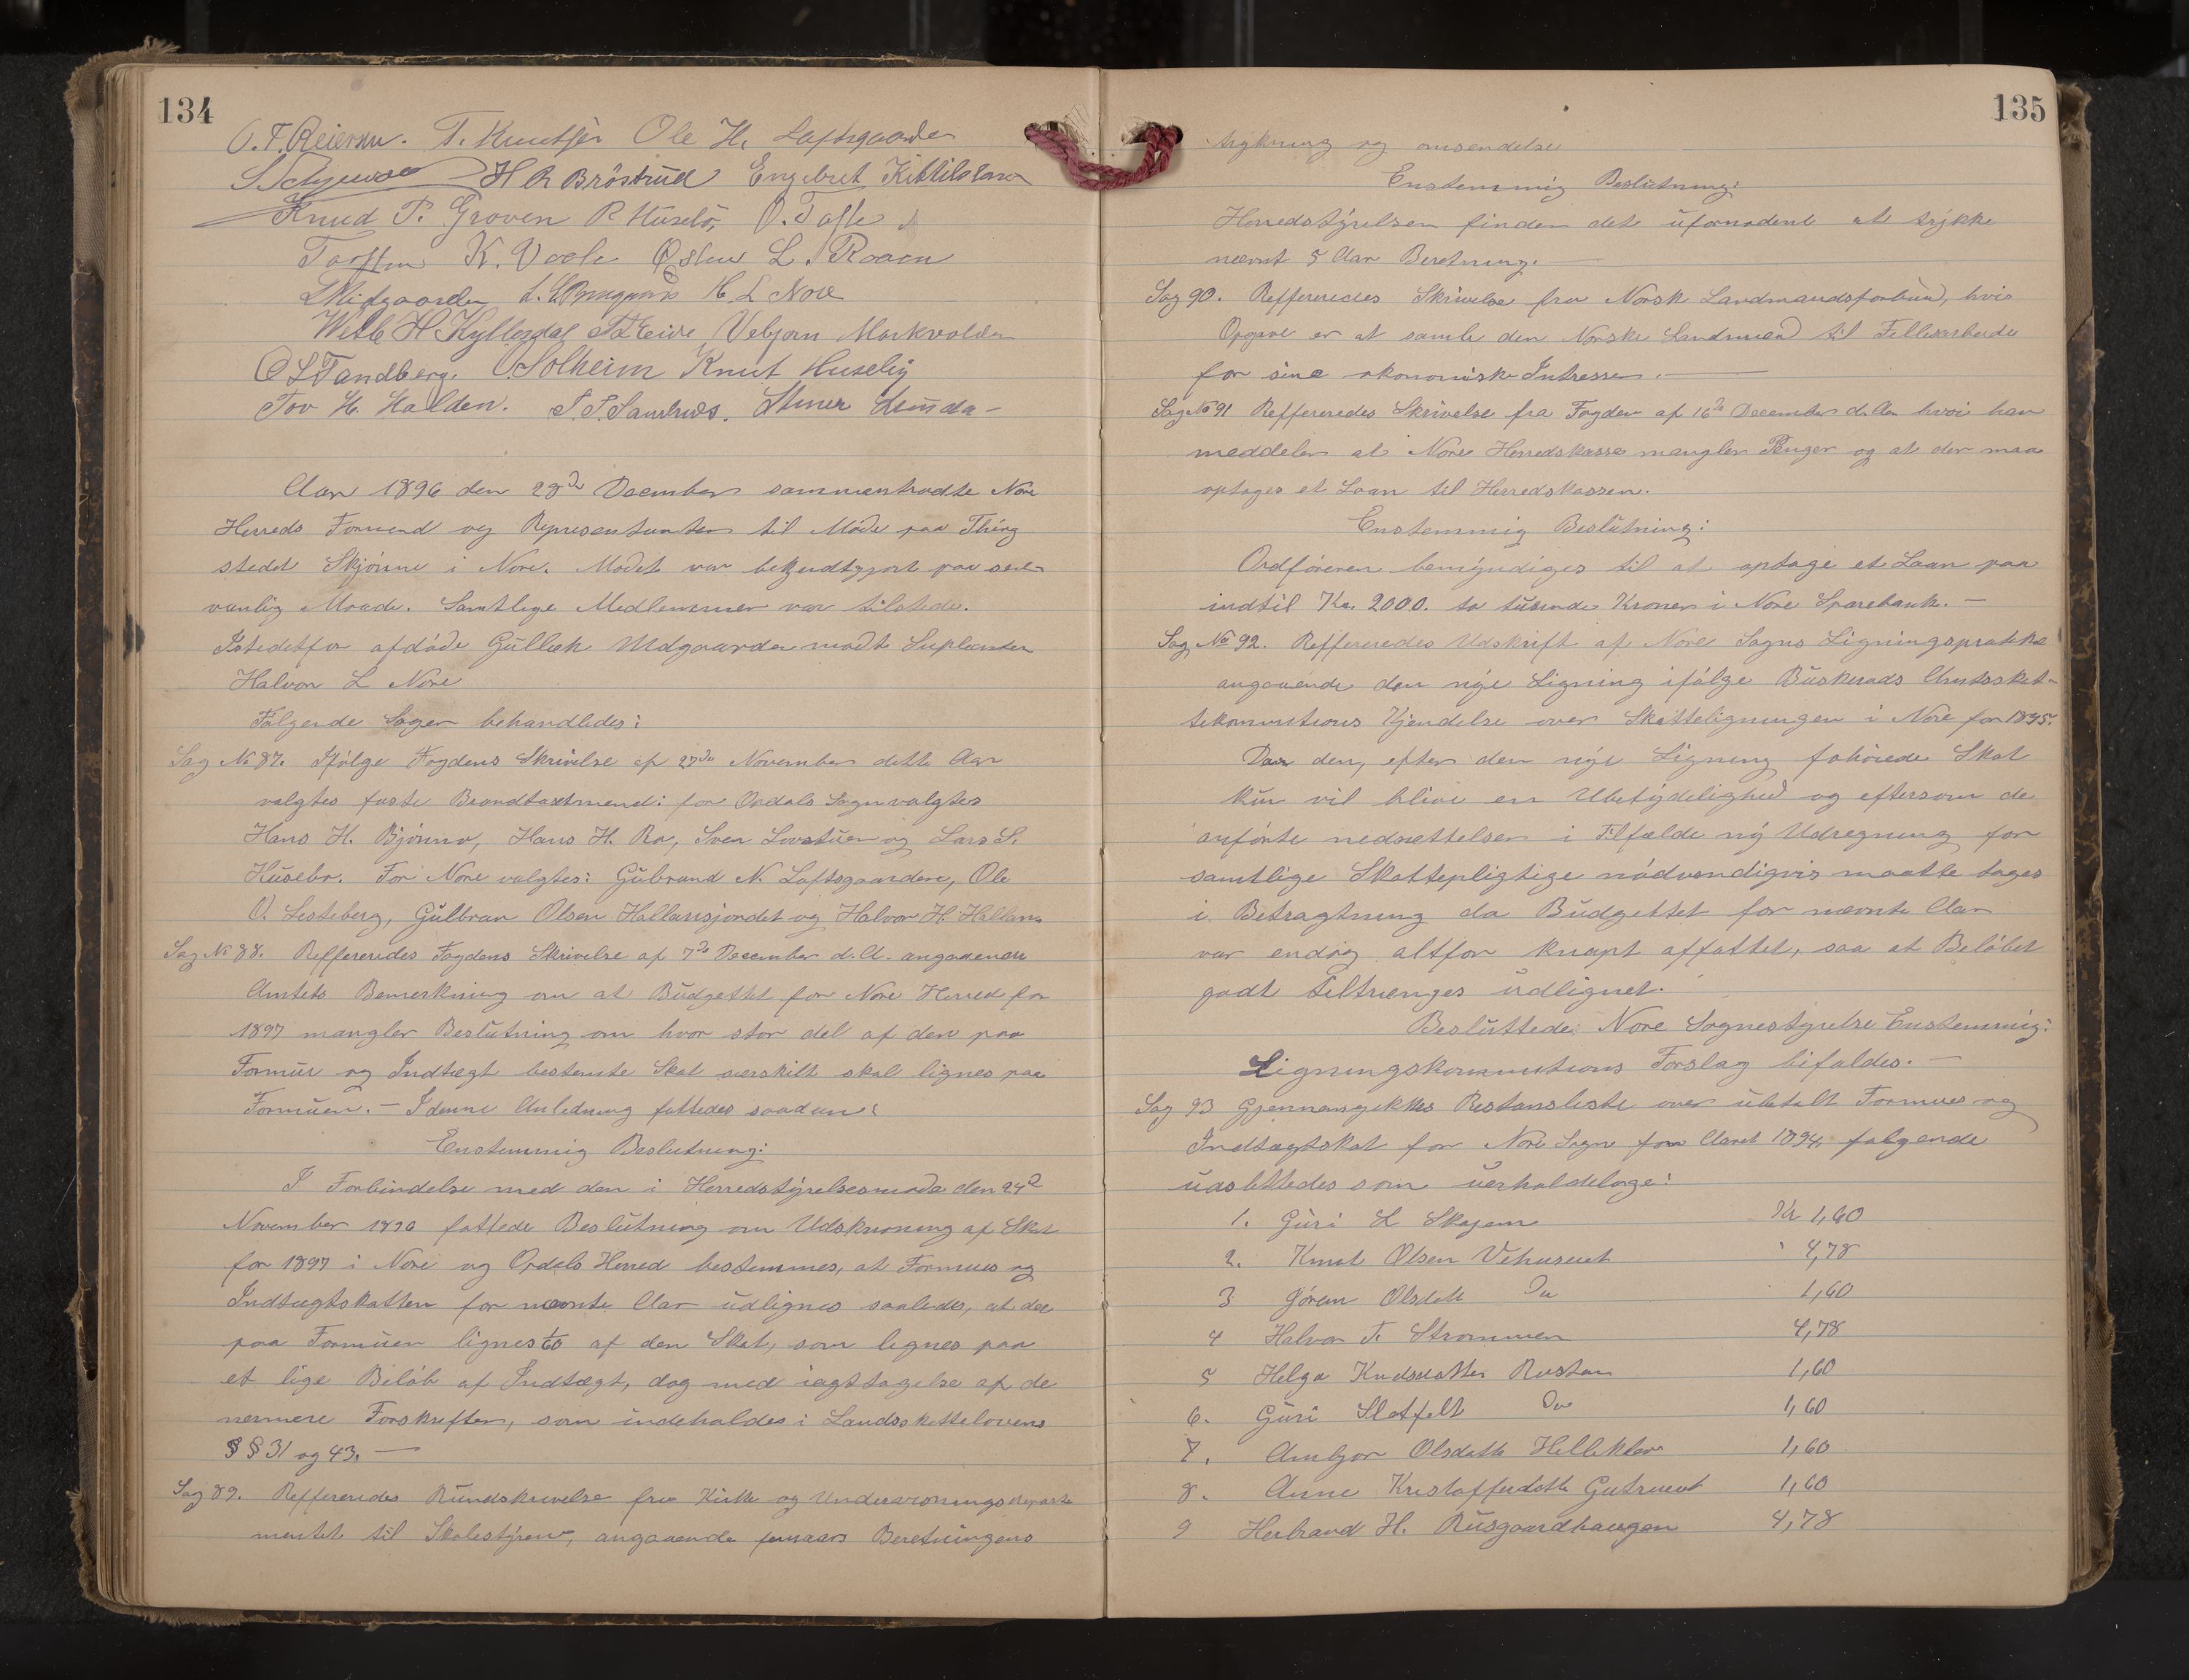 134
O. T. Reiersen. T. Knutsjø Ole H. Loftsgaarden
H R Bröstrud Engebret Kittilsland
Knud P. Groven P. Huselö, O. Tasse
Torsten K. Voole Østen L. Roaen
L Midgaarden H. L Nore
H. Kyllesdal T Eide, Vebjørn Markvolden
O L Tandberg. O. Solheim Knut Huselig
Tov H. Halden. S. S. Sandnes. Stiner
Aar 1896 den 28de December sammentraadte Nore
Herreds Formend og Representanter til Møde paa Thing
stedet Skjönne i Nore. Mødet var bekjendtgjort paa sed-
vanlig Maade. Samtlige Medlemmer var tilstede.
Istedetfor afdöde Gullek Midgaarden mødt Suplanten
Halvor L Nore
Følgende Sager behandledes:
Sag No 87. Ifölge Fogdens Skrivelse af 27de November dette Aar
valgtes faste Brandtaxtmend: for Opdals Sogn valgtes
Hans H. Bjönno, Hans H. Ro, Sven Lovstuen og Lars S.
Husebr. For Nore valgtes: Gulbrand N. Loftsgaardene, Ole
O. Lesteberg, Gulbran Olsen Hallansjordet og Halvor H. Hallan
Sag No 88. Reffereredes Fogdens Skrivelse af 7de December d. A. angaaende
Amtets Bemerkning om at Budgettet for Nore Herred for
1897 mangler Beslutning om hvor stor del af den paa
Formue og Indtægt bestemte Skat særskilt skal lignes paa
Formuen. — I denne Anledning fattedes saadan:
Enstemmig Beslutning:
I Forbindelse med den i Herredstyrelsesmøde den 24d
November 1896 fattede Beslutning om Udskrivning af Skat
for 1897 i Nore og Opdals Herred bestemmes, at Formues og
Indtægtskatten for nævnte Aar udlignes saaledes, at der
paa Formuen lignes 1/60 af den Skat, som lignes paa
et lige Belöb af Indtægt, dog med iagttagelse af de
nermere Forskrifter, som indeholdes i Landsskattelovens
§ § 31 og 43. —
Sag 89. Reffereredes Rundskrivelse fra Kirke og Undervisningsdeparte
mentet til Skolestyrene, angaaende femaars Beretningens
135
trykning og omsendelse
Enstemmig Beslutning:
Herredstyrelsen finder det ufornødent at trykke
nævnt 5 Aar Beretning. —
Sag 90. Reffereredes Skrivelse fra Norsk Landmandsforbund, hvis
Opgave er at samle den Norske Landmand til Fellesarbeide
for sine økonomiske Intresser. —
Sag No 91 Reffereredes Skrivelse fra Fogden af 16de December d. Aar hvori han
meddeler at Nore Herredskasse mangler Penger og at der maa
optages et Laan til Herredskassen.
Enstemmig Beslutning:
Ordföreren bemyndiges til at optage et Laan paa
indtil Kr. 2000. to tusinde Kroner i Nore Sparebank. —
Sag No 92. Reffereredes Udskrift af Nore Sogns Ligningsprotokol
angaaende den nye Ligning ifölge Buskeruds Amtsskat-
tekommitions Kjendelse over Skatteligningen i Nore for 1895.
Daa den, efter den nye Ligning forhöiede Skat
kun vil blive en Ubetydelighed og eftersom de
anförte nedsættelser i Tilfælde ny Udregning for
samtlige Skattepligtige nödvendigvis maatte tages
i Betragtning da Budgettet for nævnte Aar
var endog altfor knapt affattet, saa at Belöbet
godt tiltrænges udlignet.
Besluttede Nore Sognestyrelse Enstemmig:
Ligningskommitions Forslag bifaldes. —
Sag 93 Gjennemgikkes Restansliste over ubetalt Formues og
Indtægtskat for Nore Sogn for Aaret 1894, følgende
udslettedes som uerholdelige:
1. Guri L Skajem Kr 1,60
2. Knut Olsen Vehuseut " 4,78
3 Jören Olsdatt Do 1,60
4 Halvor T. Strømmen 4,78
5 Helga Knudsdatter Rustan 1,60
6. Guri Slotfelt Do 1,60
7. Ambjør Olsdatt Helleklev 1,60
8. Anne Kristoffersdatt Gutrueut 1,60
9 Herbrand H. Rusgaardhaugen 4,78